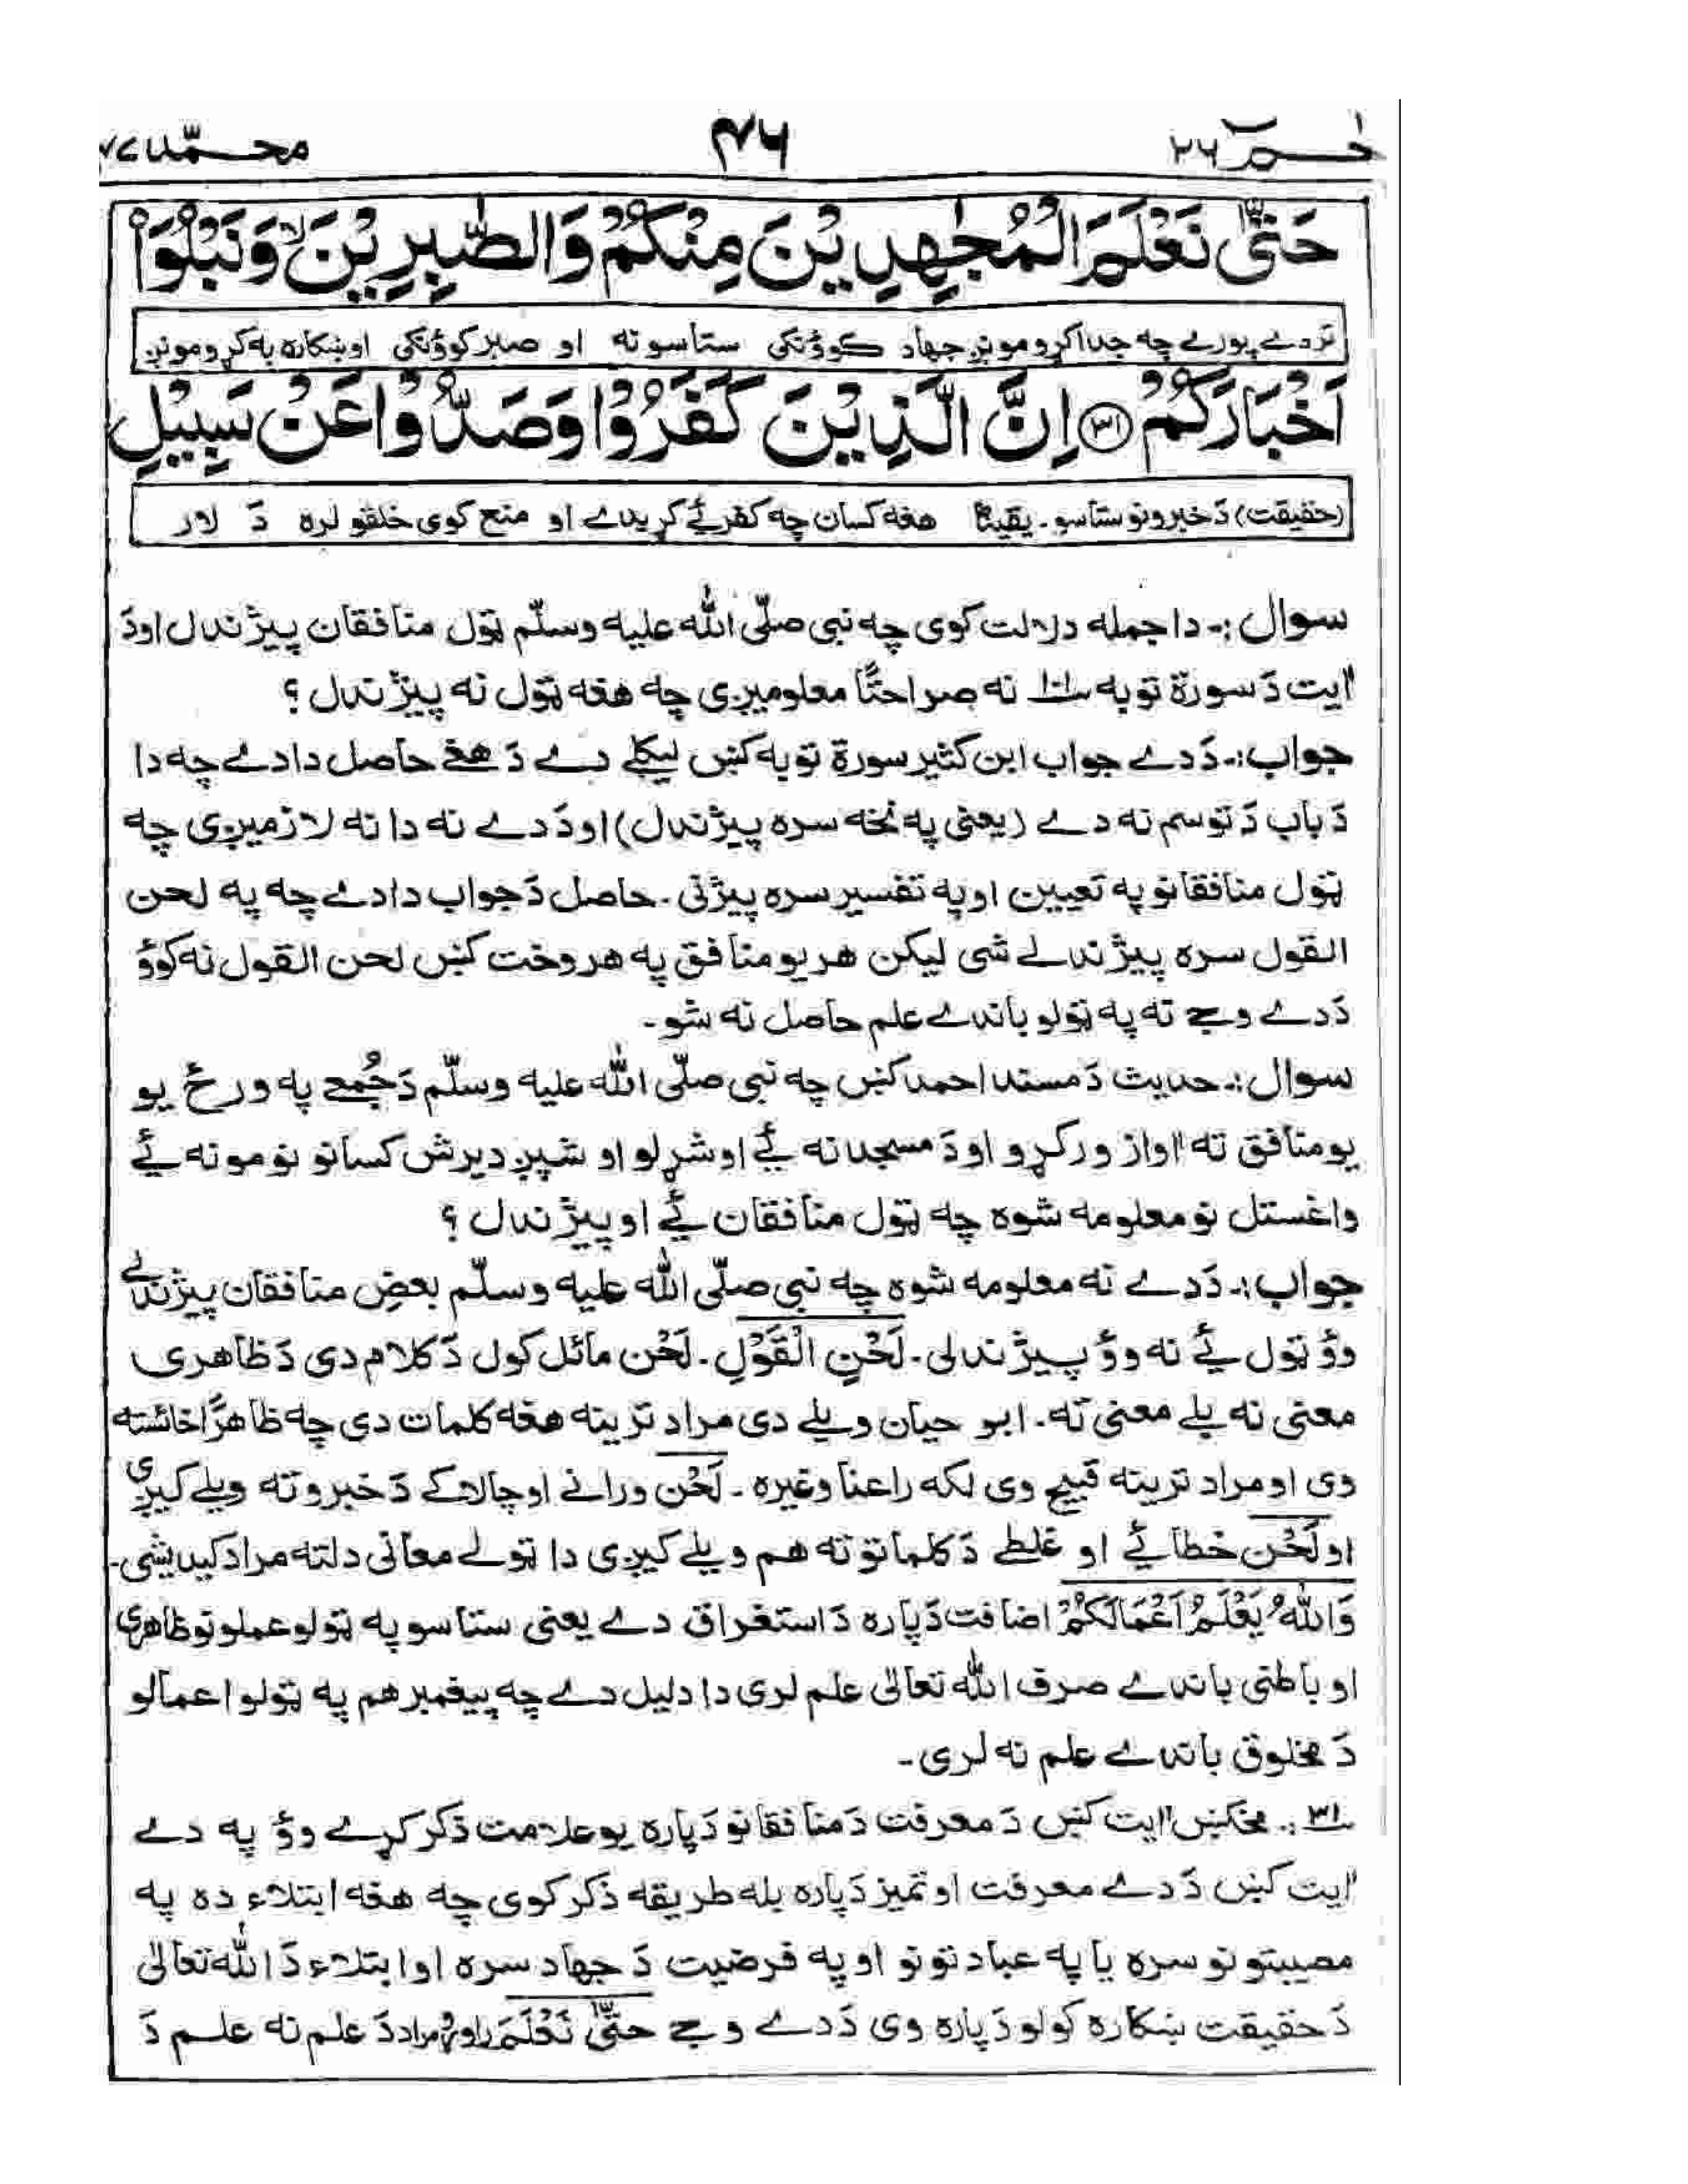 حٰـمٓ ٢٦ ٧٦ محـمّد ٤٧
حَتّٰى نَعْلَمَ الْمُجٰهِدِيْنَ مِنْكُمْ وَالصّٰبِرِيْنَ ۙ وَنَبْلُوَا۟
تردے پورے چه جدا کړو مونږ جهاد کوؤنکی ستاسو نه او صبر کوؤنکی او ښکاره به کړو مونږ
اَخْبَارَكُمْ ﴿٣١﴾ اِنَّ الَّذِيْنَ كَفَرُوْا وَصَدُّوْا عَنْ سَبِيْلِ
(حقیقت) دَ خبرونو ستاسو۔ یقیناً هغه کسان چه کفر ئے کړیدے او منع کوی خلقو لره دَ لار
سوال :۔ دا جمله دلالت کوی چه نبی صلّی اللّٰه علیه وسلّم ټول منافقان پیژندل او دَ
اٰیت دَ سورة توبه ١٠١ نه صراحتًا معلومیږی چه هغه ټول نه پیژندل ؟
جواب :۔ دَ دے جواب ابن کثیر سورة توبه کښ لیکلے دے دَ هغے حاصل دا دے چه دا
دَ باب دَ توسم نه دے (یعنی په نخه سره پیژندل) او دَ دے نه دا نه لازمیږی چه
ټول منافقانو په تعیین او په تفسیر سره پیژنی۔ حاصل دَ جواب دا دے چه په لحن
القول سره پیژندلے شی لیکن هر یو منافق په هر وخت کښ لحن القول نه کوؤ
دَ دے وجے نه په ټولو باندے علم حاصل نه شو۔
سوال :۔ حدیث دَ مسند احمد کښ چه نبی صلّی اللّٰه علیه وسلّم دَ جُمعے په ورځ یو
یو منافق ته اٰواز ورکړو او دَ مسجد نه ئے اوشړلو او شپږ دیرش کسانو نومونه ئے
واغستل نو معلومه شوه چه ټول منافقان ئے اوپیژندل ؟
جواب :۔ دَ دے نه معلومه شوه چه نبی صلّی اللّٰه علیه وسلّم بعضِ منافقان پیژندلے
وؤ ټول ئے نه وؤ پیژندلی۔ لَحْنِ الْقَوْلِ۔ لَحْن مائل کول دَ کلام دی دَ ظاهری
معنی نه بلے معنی ته۔ ابو حیان ویلے دی مراد ترینه هغه کلمات دی چه ظاهرًا خائسته
وی او مراد ترینه قبیح وی لکه راعنا وغیره۔ لَحْن ورانے او چالاکے دَ خبرو ته ویلے کیږی
او لَحْن خطائے او غلطے دَ کلماتو ته هم ویلے کیږی دا ټولے معانی دلته مراد کیدیشی۔
وَاللّٰهُ يَعْلَمُ اَعْمَالَكُمْ اضافت دَپاره دَ استغراق دے یعنی ستاسو په ټولو عملونو ظاهری
او باطنی باندے صرف اللّٰه تعالٰی علم لری دا دلیل دے چه پیغمبر هم په ټولو اعمالو
دَ مخلوق باندے علم نه لری۔
٣١ :۔ مخکښ اٰیت کښ دَ معرفت دَ منافقانو دَپاره یو علامت ذکر کړے وؤ په دے
اٰیت کښ دَ دے معرفت او تمیز دَپاره بله طریقه ذکر کوی چه هغه ابتلاء ده په
مصیبتونو سره یا په عبادتونو او په فرضیت دَ جهاد سره او ابتلاء دَ اللّٰه تعالٰی
دَ حقیقت ښکاره کولو دَپاره وی دَ دے وجے حتّٰی نَعْلَمَ راوړو مراد دَ علم نه علم دَ